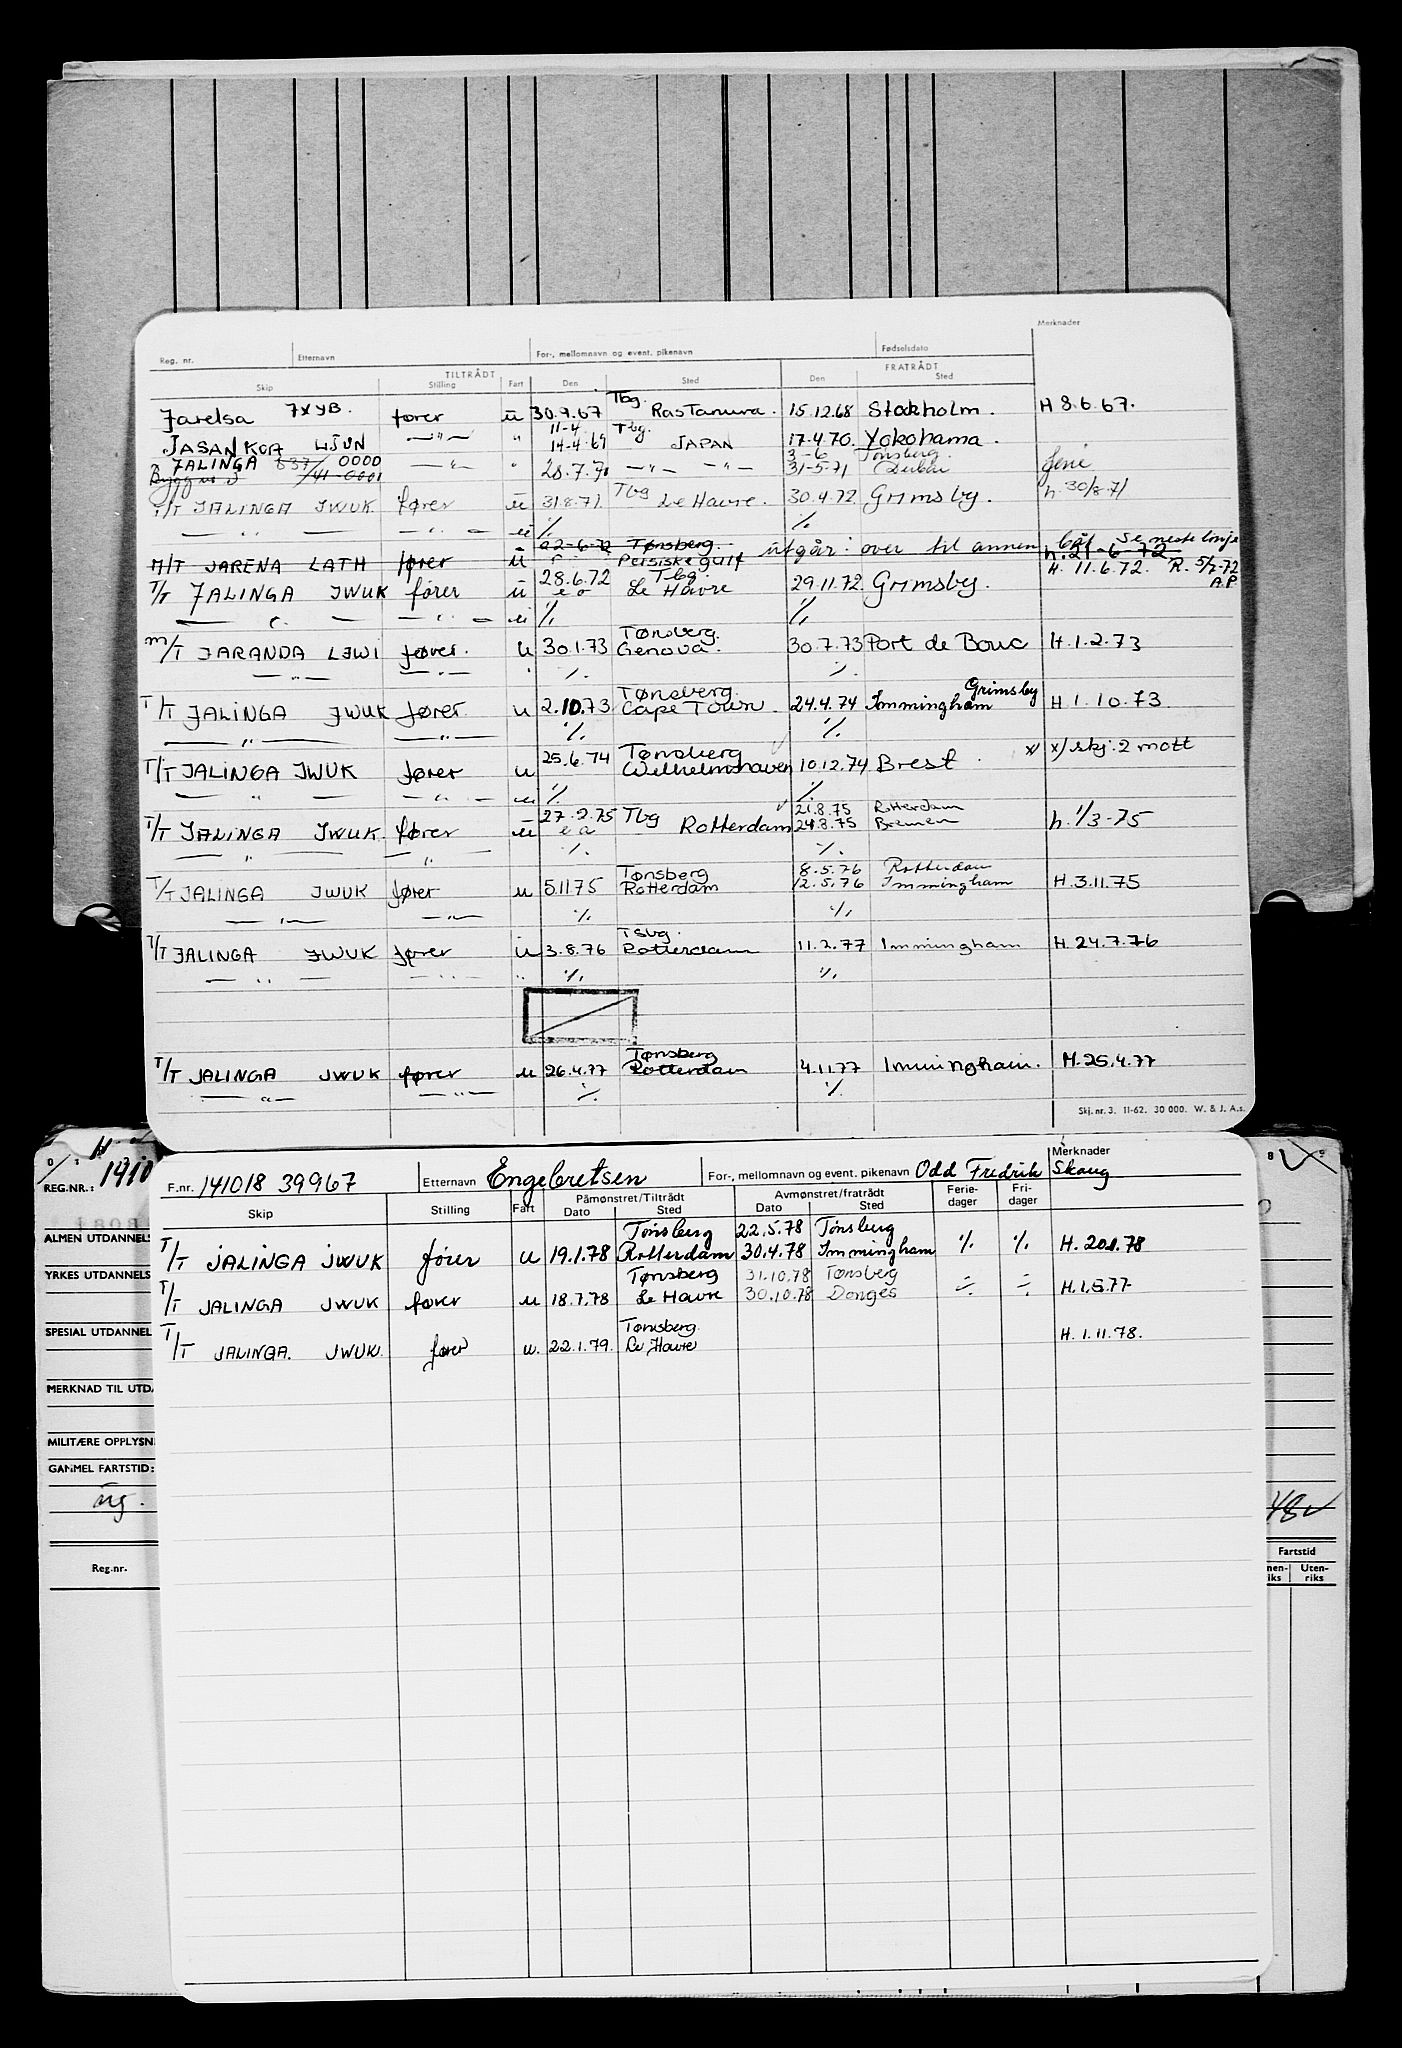 Merknader
Reg. nr. Etternavn For-, mellomnavn og event. pikenavn Fødselsdato
TILTRÅDT FRATRÅDT
Skip Stilling Fart Den Sted Den Sted
Jarelsa JXYB. fører u 30.9.67 Tbg. Ras Tanura. 15.12.68 Stockholm. H 8.6.67.
11-4 Tbg.
JASANKOA LJUN —"— " 14-4-69 JAPAN 17.4.70. Yokohama.
3-6 Tønsberg.
JALINGA 0000 —"— " 28.7.70 —"— —"— 31-5-71 Dubai ferie
T/T JALINGA JWUK fører u 31.8.71. Tbg Le Havre. 30.4.72 Grimsby. h. 30/8-71
— " — — " — u % %
22-6-72 Tønsberg. utgår: over til annen båt Se neste linje
M/T JARENA LATH fører u Persiske gulf h. 21-6-72
28.6.72 Tbg. H. 11.6.72. R. 5/7-72
T/T JALINGA JWUK fører u e o Le Havre 29.11.72. Grimsby. A.P
— " — — " — u % %
Tønsberg.
M/T JARANDA LEWI fører. u 30.1.73 Genova. 30.7.73 Port de Bouc H.1.2.73
— " — — " — % %
Tønsberg. Grimsby
T/T JALINGA JWUK fører u 2.10.73 Cape Town. 24.4.74 Immingham H 1.10.73.
— " — — " — % %
25.6.74 Tønsberg x/ x/ skj. 2 mott
T/T JALINGA JWUK fører u Wilhelmshaven 10.12.74 Brest.
— " — — " — u % %
27.2.75 Tbg 21.8.75 Rotterdam
T/T JALINGA JWUK. fører u e o Rotterdam 24.8.75 Bremen h. 1/3-75
— " — — " — % %
Tønsberg 8.5.76 Rotterdam
T/T JALINGA JWUK fører u 5.11.75 Rotterdam 12.5.76 Immingham H.3.11.75
— " — — " — % %
Tsbg.
T/T JALINGA JWUK fører u 3.8.76 Rotterdam 11.2.77 Immingham H.24.7.76
— " — — " — " % %
Tønsberg
T/T JALINGA JWUK fører u 26.4.77 Rotterdam 4.11.77 Immingham. H.25.4.77
— " — — " — % %
Skj. nr. 3. 11-62. 30 000. W. & J. A.s.
REG.NR.: 1410
ALMEN UTDANNELS
YRKES UTDANNELS
SPESIAL UTDANNEL
MERKNAD TIL UTD
MILITÆRE OPPLYSN
GAMMEL FARTSTID:
Reg.nr.
F.nr. 141018 39967 Etternavn Engebretsen For-, mellomnavn og event. pikenavn Odd Fredrik Skaug
Merknader
Påmønstret/Tiltrådt Avmønstret/fratrådt Ferie-dager Fri-dager
Skip Stilling Fart Dato Sted Dato Sted
Tønsberg 22.5.78 Tønsberg
T/T JALINGA JWUK fører u 19.1.78 Rotterdam 30.4.78 Immingham % % H. 20.1.78
Tønsberg 31.10.78 Tønsberg
T/T JALINGA JWUK fører u 18.7.78 Le Havre 30.10.78 Donges ÷ ÷ H.1.5.77
Tønsberg.
T/T JALINGA. JWUK. fører u. 22.1.79. Le Havre H. 1.11.78.
48
Fartstid
Uten-riks